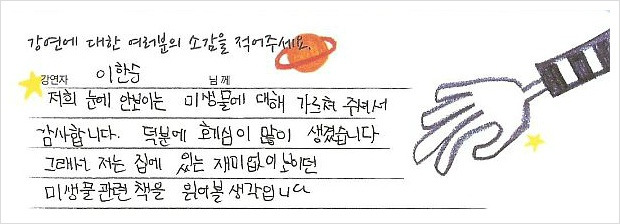 강연에 대한 여러분의 소감을 적어주세요.
강연자 이한승 님께
저희 눈에 안보이는 미생물에 대해 가르쳐 주셔서
감사합니다. 덕분에 호기심이 많이 생겼습니다
그래서 저는 집에 있는 재미없어 보이던
미생물 관련 책을 읽어볼 생각입니다